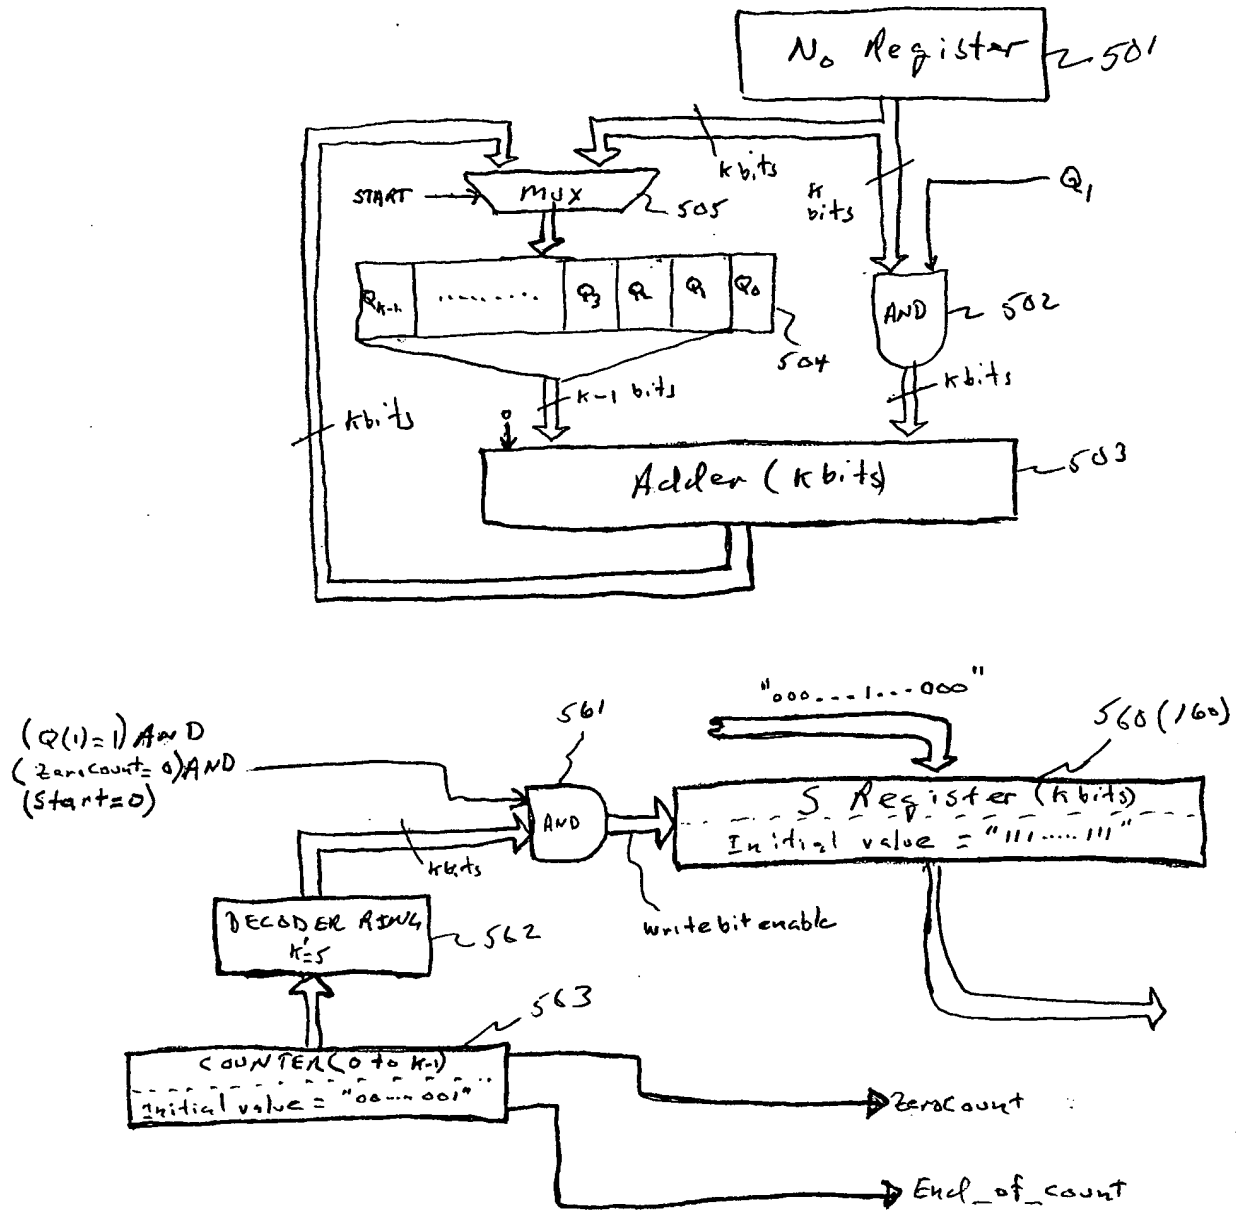 N₀ Register
501
k bits
k bits
Q₁
START
MUX
505
Qk-1 ........ Q3 Q2 Q1 Q0
504
AND
502
k-1 bits
k bits
k bits
0
Adder (k bits)
503
"000...1...000"
561
560 (160)
(Q(1)=1) AND
(Zerocount=0) AND
(Start=0)
AND
S Register (k bits)
Initial value = "111.....111"
k bits
write bit enable
DECODER RING
562
563
COUNTER (0 to k-1)
Initial value = "00....001"
Zerocount
End_of_count